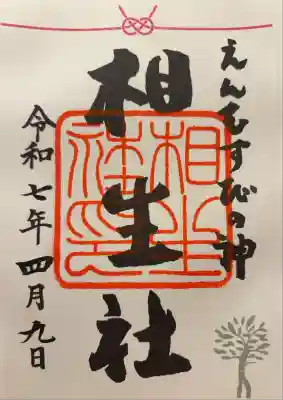 えんむすびの神
相生社
相生社印
令和七年四月九日